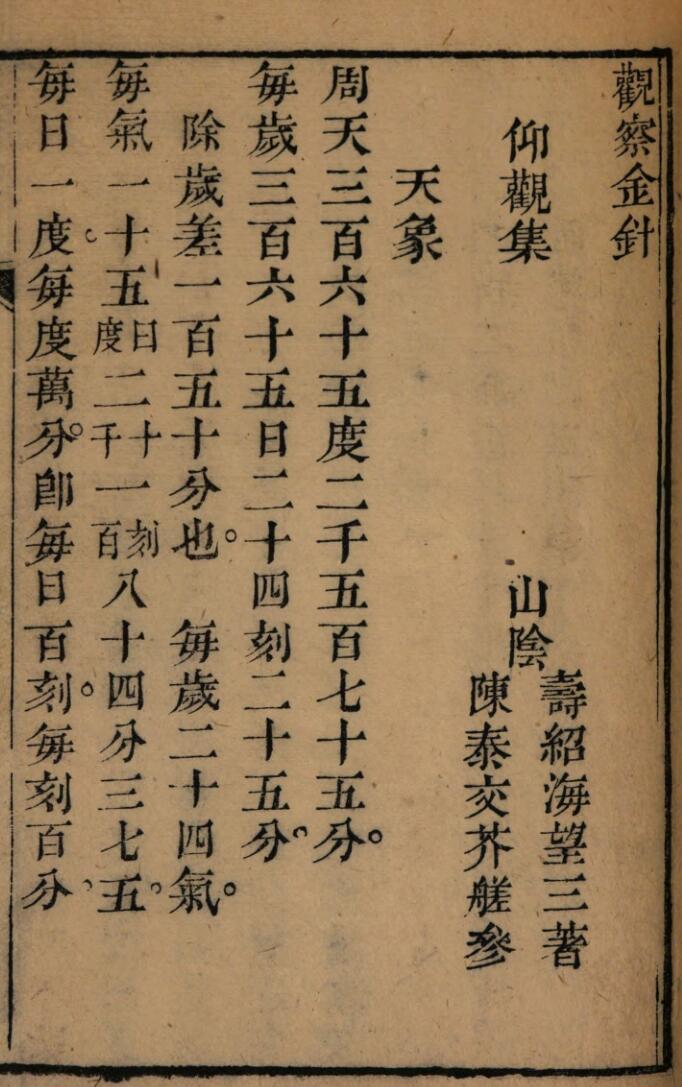 觀察金針
仰觀集
山陰
壽紹海望三著
陳泰交芥艖參
天象
周天三百六十五度二千五百七十五分。
每歲三百六十五日二十四刻二十五分。
除歲差一百五十分也。 每歲二十四氣。
每氣一十五日度二十千一刻百八十四分三七五。
每日一度每度萬分。卽每日百刻。每刻百分、